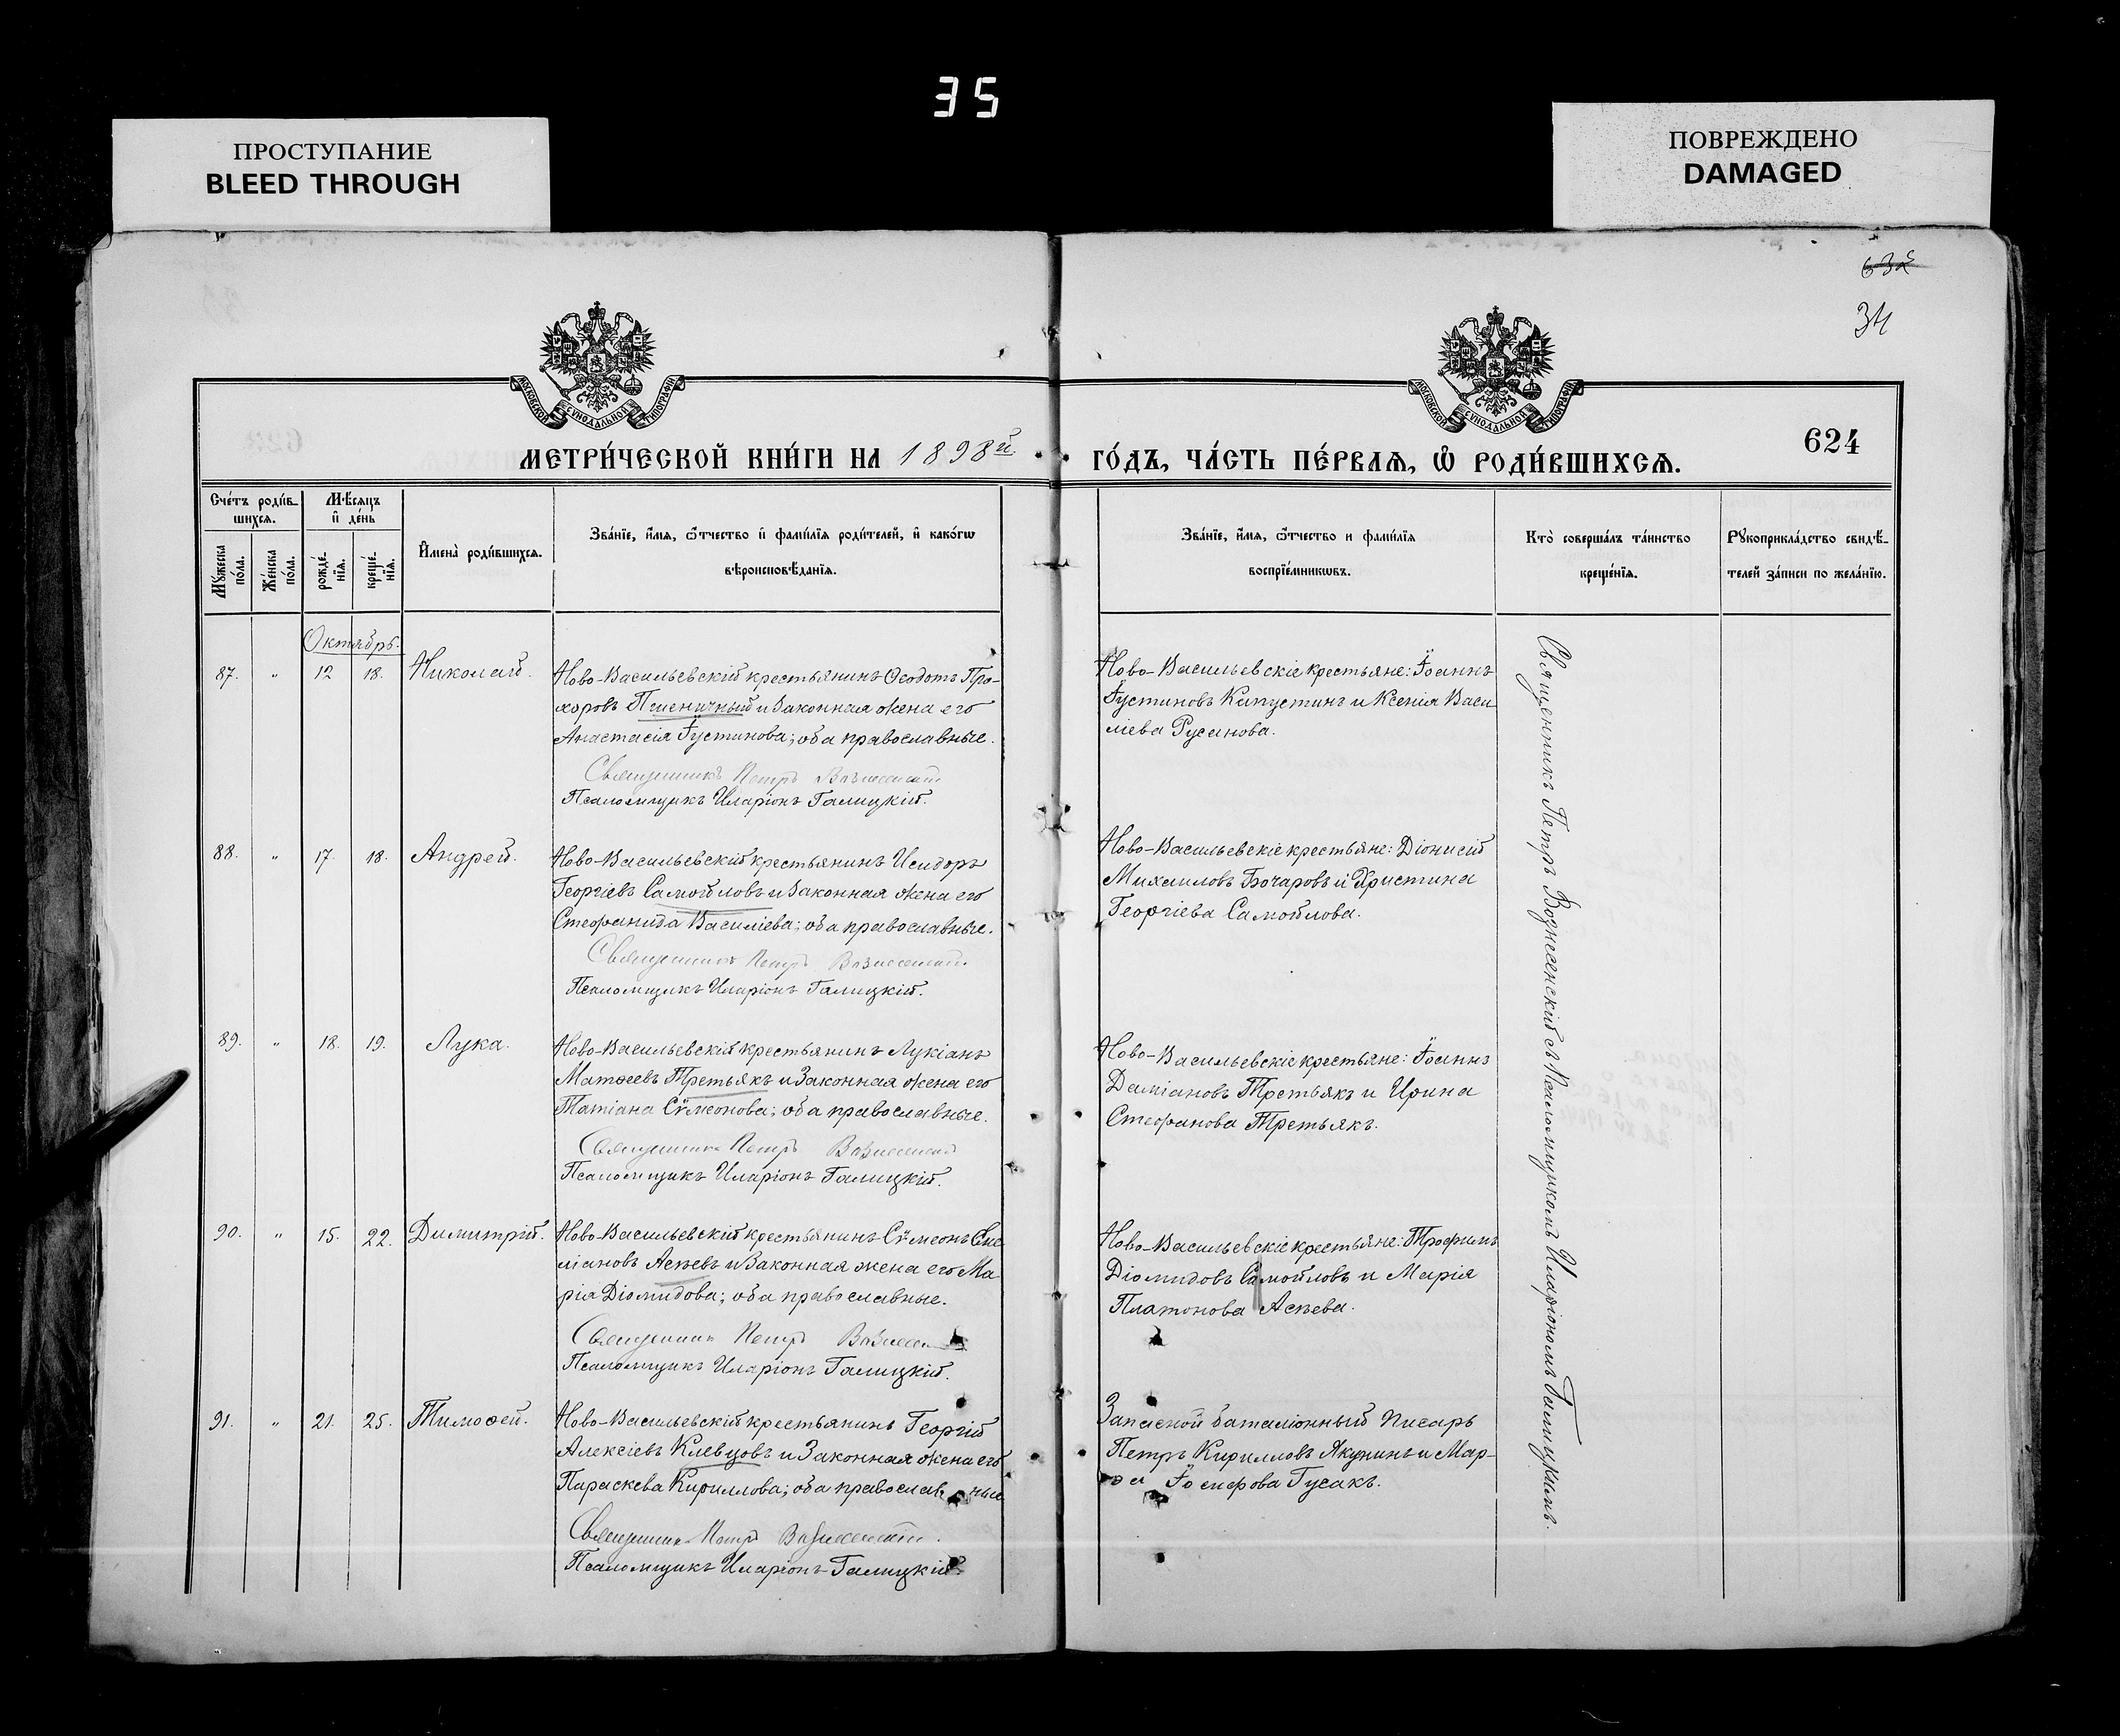 35
ПРОСТУПАНИЕ
BLEED THROUGH
ПОВРЕЖДЕНО
DAMAGED
34
МОСКОВСКОЙ СУНОДАЛЬНОЙ ТИПОГРАФІИ
МОСКОВСКОЙ СУНОДАЛЬНОЙ ТИПОГРАФІИ
МЕТРИ́ЧЕСКОЙ КНИ́ГИ НА 1898й
ГО́ДЪ, ЧА́СТЬ ПЕ́РВАѦ, Ѽ РОДИ́ВШИХСѦ.
624
Сче́тъ роди́в-
шихсѧ.
Мѣ́сѧцъ
и҆ де́нь
Мꙋ́жеска
по́ла.
Же́нска
по́ла.
рожде́-
нїѧ.
креще́-
нїѧ.
И҆мена̀ роди́вшихсѧ.
Зва́нїе, и҆́мѧ, ѻ҆́тчество и҆ фами́лїѧ роди́телей, и҆ како́гѡ
вѣроисповѣ́данїѧ.
Зва́нїе, и҆́мѧ, ѻ҆́тчество и фами́лїѧ
воспрїе́мникѡвъ.
Кто̀ соверша́лъ та́инство
креще́нїѧ.
Рꙋкоприкла́дство свидѣ́-
телей за́писи по жела́нїю.
Октябрь.
87. " 12 18. Николай.
Ново-Васильевскій крестьянинъ Ѳеодотъ Про-
хоровъ Пшеничный и законная жена его
Анастасія Іустинова; оба православные.
Священникъ Петръ Вознесенскій
Псаломщикъ Иларіонъ Галицкій.
Ново-Васильевскіе крестьяне: Іоаннъ
Іустиновъ Капустинъ и Ксенія Васи
ліева Русанова.
88. " 17. 18. Андрей.
Ново-Васильевскій крестьянинъ Исидоръ
Георгіевъ Самойловъ и законная жена его
Стефанида Василіева; оба православные.
Священникъ Петръ Вознесенскій
Псаломщикъ Иларіонъ Галицкій.
Ново-Васильевскіе крестьяне: Діонисій
Михаиловъ Бочаровъ и Христина
Георгіева Самойлова.
89. " 18. 19. Лука.
Ново-Васильевскій крестьянинъ Лукіанъ
Матѳеевъ Третьякъ и законная жена его
Татіана Сѵмеонова; оба православные.
Священникъ Петръ Вознесенскій
Псаломщикъ Иларіонъ Галицкій.
Ново-Васильевскіе крестьяне: Іоаннъ
Даміановъ Третьякъ и Ирина
Стефанова Третьякъ.
90. " 15. 22. Димитрій.
Ново-Васильевскій крестьянинъ Сѵмеонъ
ліановъ Асѣевъ и законная жена его Ма
рія Діомидова; оба православные.
Священникъ Петръ Вознесен
Псаломщикъ Иларіонъ Галицкій.
Ново-Васильевскіе крестьяне: Трофимъ
Діомидовъ Самойловъ и Марія
Платонова Асѣева.
91. " 21. 25. Тимоѳей.
Ново-Васильевскій крестьянинъ Георгій
Алексіевъ Клевцовъ и законная жена его
Параскева Кириллова; оба православные
Священникъ Петръ Вознесенскій.
Псаломщикъ Иларіонъ Галицкій.
Запасной баталіонный писарь
Петръ Кирилловъ Якунинъ и Мар-
ѳа Іосифова Гусакъ.
Священникъ Петръ Вознесенскій съ Псаломщикомъ Иларіономъ Галицкимъ.